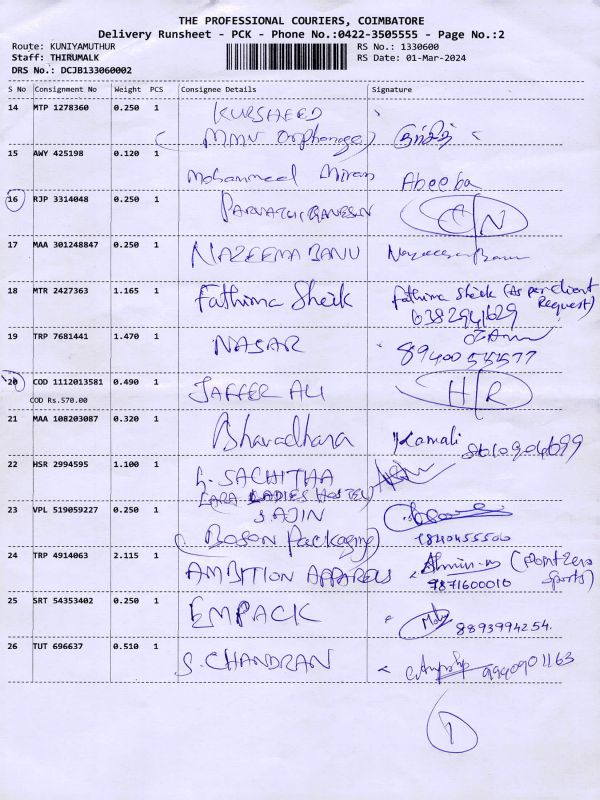 THE PROFESSIONAL COURIERS, COIMBATORE
Delivery Runsheet - PCK - Phone No.:0422-3505555 - Page No.:2
Route: KUNIYAMUTHUR RS No.: 1330600
Staff: THIRUMALK RS Date: 01-Mar-2024
DRS No.: DCJB133060002
S No Consignment No Weight PCS Consignee Details Signature
14 MTP 1278360 0.250 1 KURSHEED
(MMV Orphanage)
15 AWY 425198 0.120 1 Mohammeed Miran Abeeba
16 RJP 3314048 0.250 1
17 MAA 301248847 0.250 1 NAZEEMA BANU
18 MTR 2427363 1.165 1 Fathima Sheik Fathima Sheik (As per client Request)
6382941629
19 TRP 7681441 1.470 1 NASAR
20 COD 1112013581 0.490 1 JAFFER ALI H/R
COD Rs.570.00
21 MAA 108203087 0.320 1 Bharadhana Kamali
22 HSR 2994595 1.100 1 SACHITHA
LARA LADIES HOSTEL
23 VPL 519059227 0.250 1 SAJIN
(Boson Packaging)
24 TRP 4914063 2.115 1 AMBITION APPARELS (Point Zero Sports)
9871600010
25 SRT 54353402 0.250 1 EMPACK 8893994254
26 TUT 696637 0.510 1 S. CHANDRAN 9940901163
1